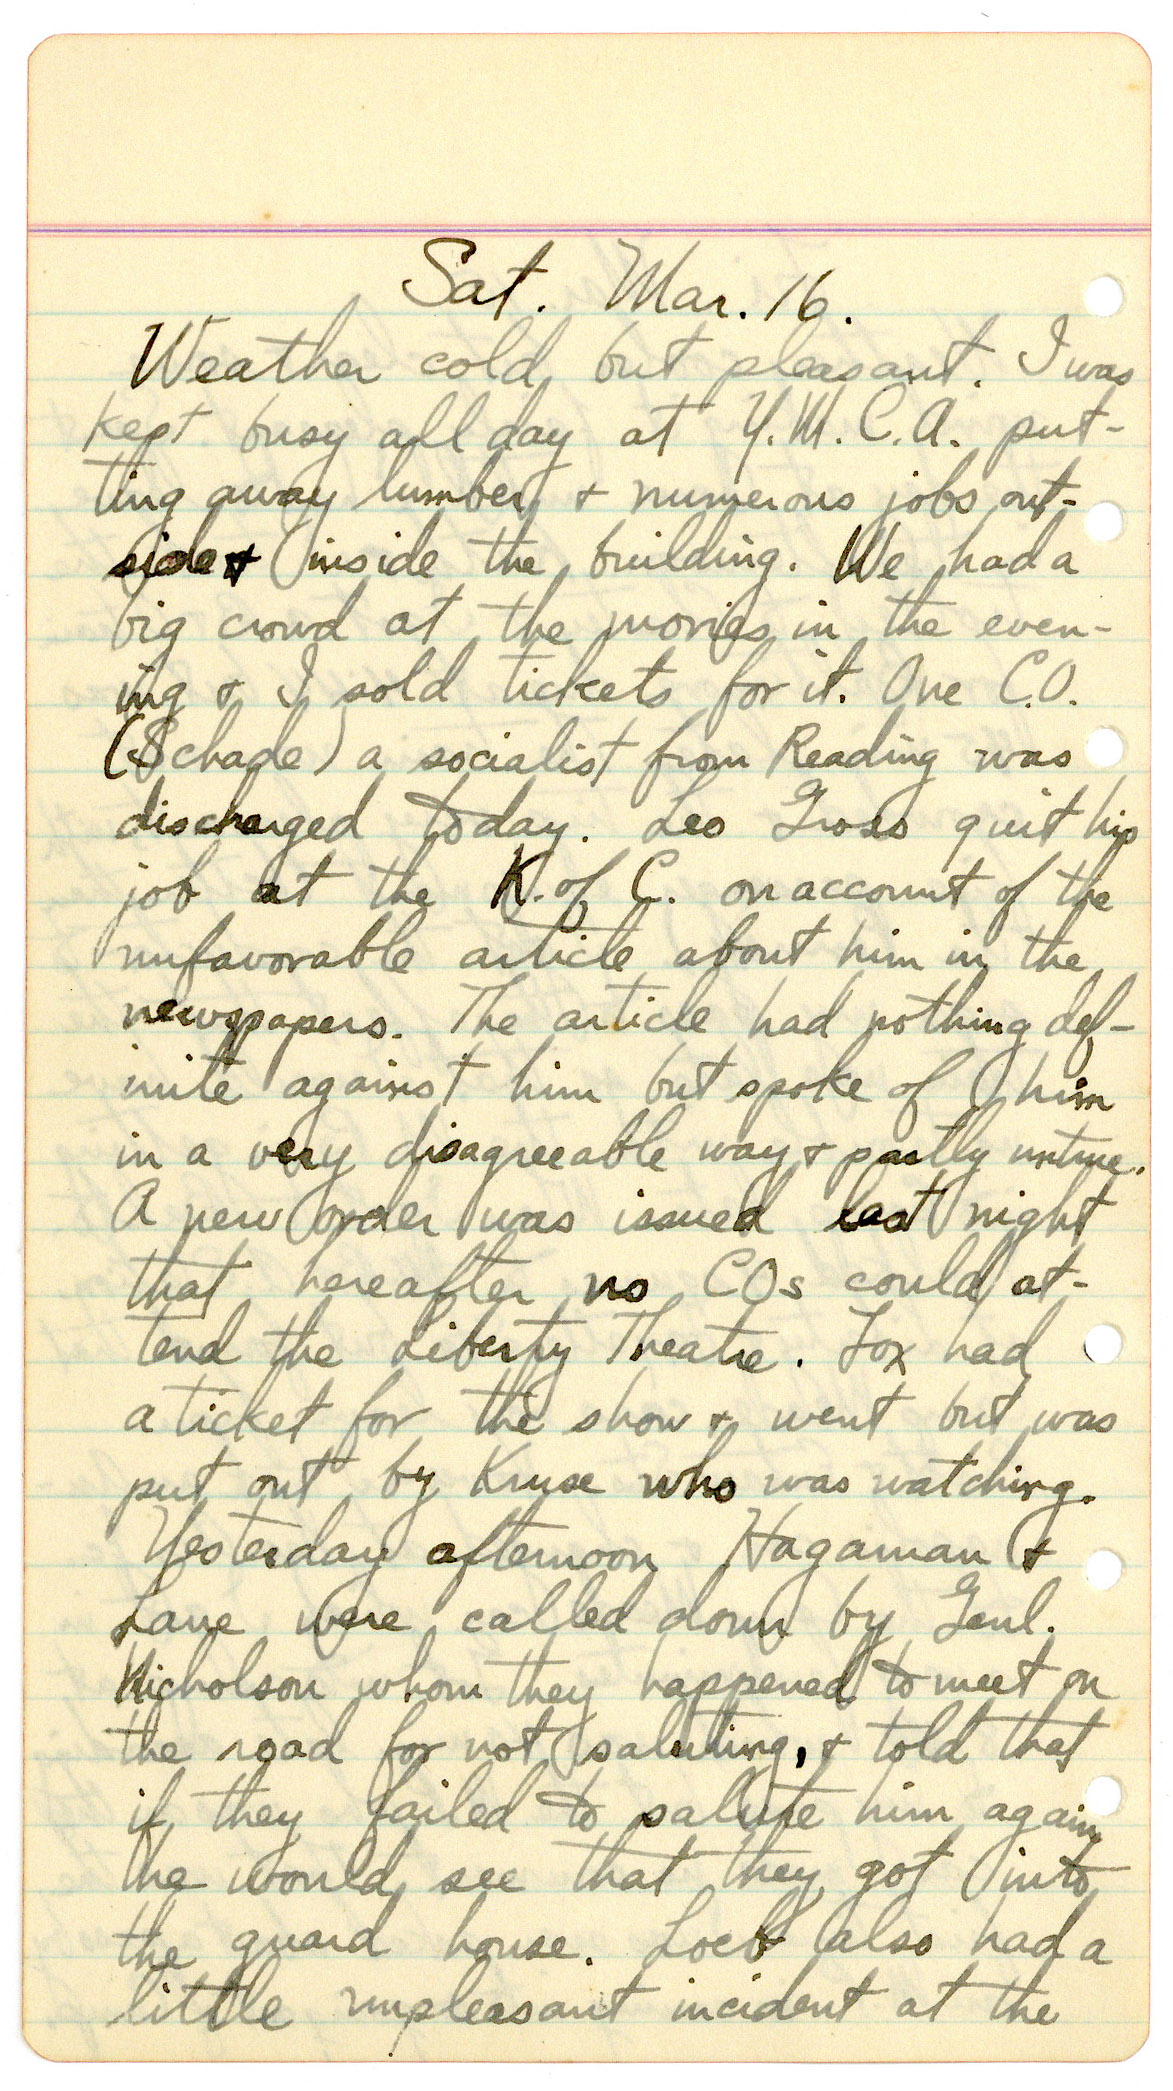 Sat. Mar. 16.
Weather cold but pleasant. I was
kept busy all day at Y.M.C.A. put-
ting away lumber & numerous jobs out-
side & inside the building. We had a
big crowd at the movies in the even-
ing & I sold tickets for it. One C.O.
(Schade) a socialist from Reading was
discharged today. Leo Gross quit his
job at the K. of C. on account of the
unfavorable article about him in the
newspapers. The article had nothing def-
inite against him but spoke of him
in a very disagreeable way & partly untrue.
A new order was issued last night
that hereafter no COs could at-
tend the Liberty Theatre. Fox had
a ticket for the show & went but was
put out by Kruse who was watching.
Yesterday afternoon Hagaman &
Lane were called down by Genl.
Nicholson whom they happened to meet on
the road for not saluting, & told that
if they failed to salute him again
he would see that they got into
the guard house. Loeb also had a
little unpleasant incident at the